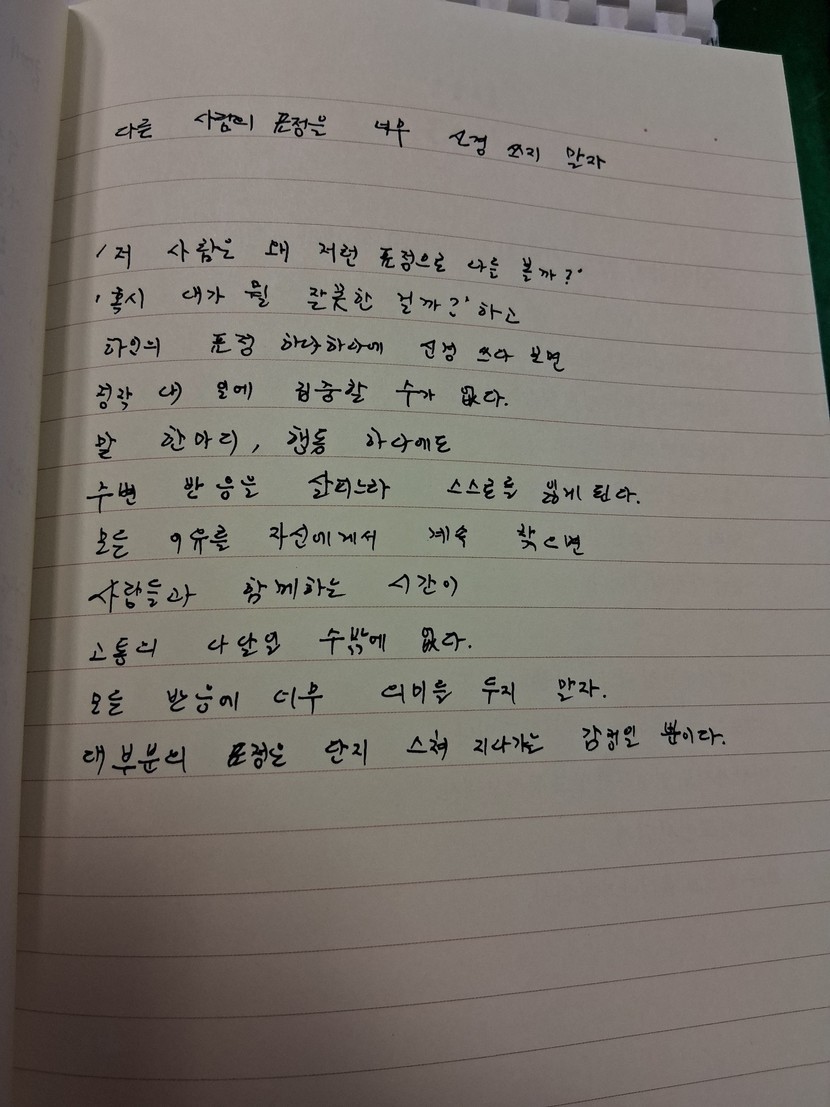 다른 사람의 표정을 너무 신경 쓰지 말자
'저 사람은 왜 저런 표정으로 나를 볼까?'
'혹시 내가 뭘 잘못한 걸까?' 하고
타인의 표정 하나하나에 신경 쓰다 보면
정작 내 일에 집중할 수가 없다.
말 한마디, 행동 하나에도
주변 반응을 살피느라 스스로를 잃게 된다.
모든 이유를 자신에게서 계속 찾으면
사람들과 함께하는 시간이
고통의 나날일 수밖에 없다.
모든 반응에 너무 의미를 두지 말자.
대부분의 표정은 단지 스쳐 지나가는 감정일 뿐이다.